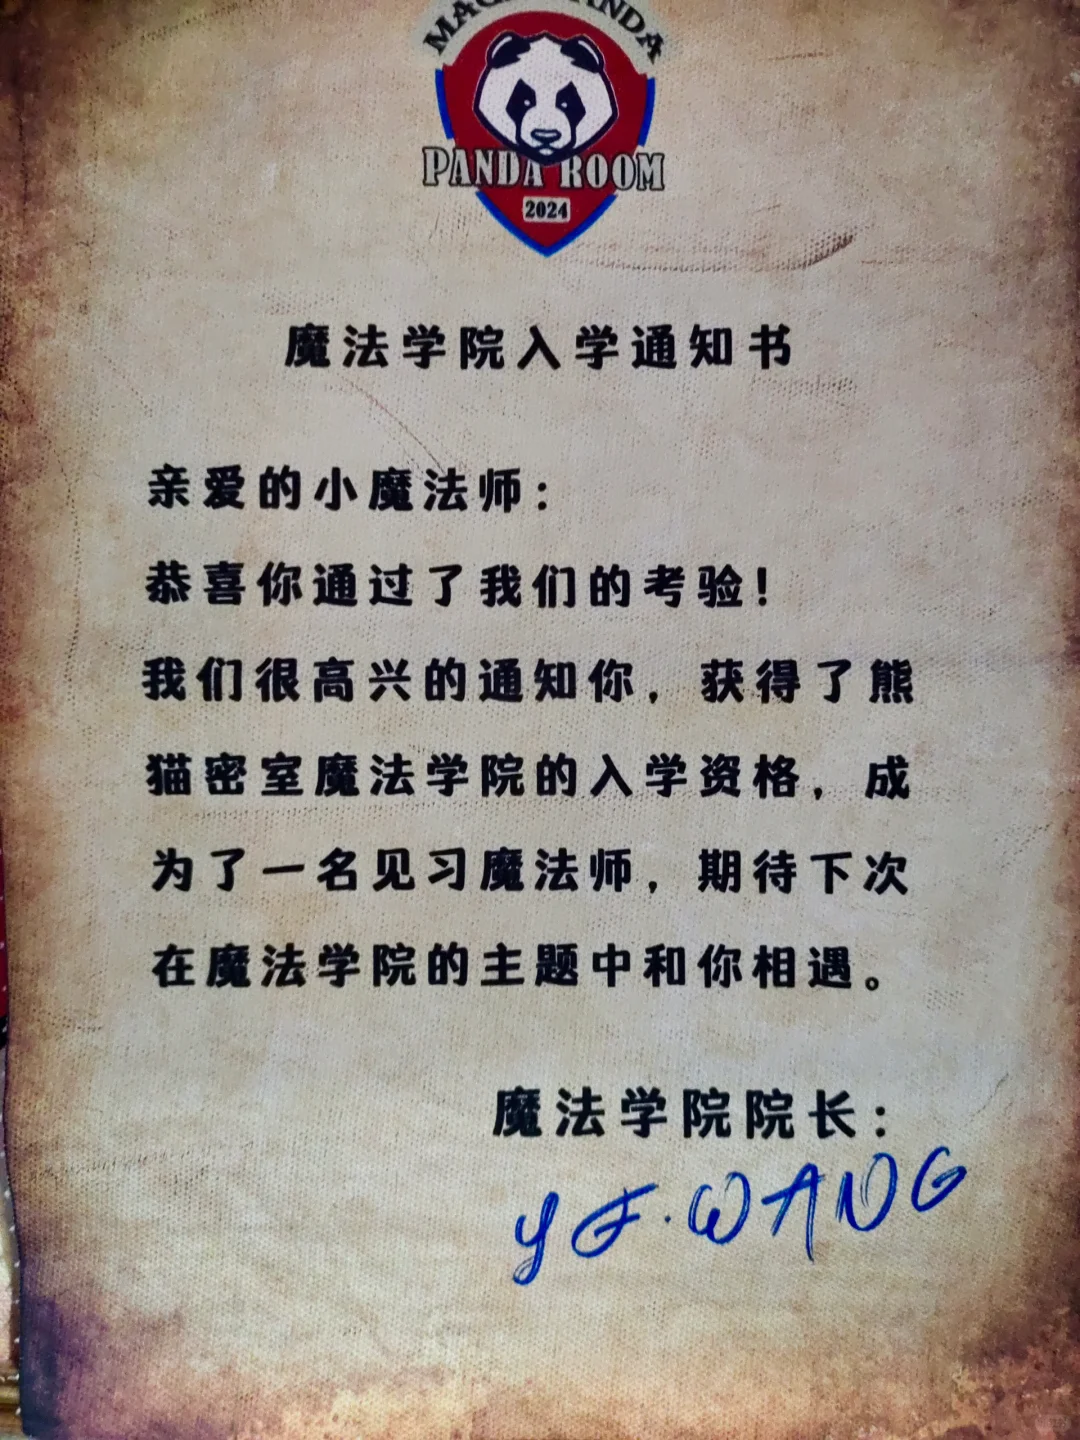 PANDA ROOM
2024
魔法学院入学通知书
亲爱的小魔法师：
恭喜你通过了我们的考验！
我们很高兴的通知你，获得了熊
猫密室魔法学院的入学资格，成
为了一名见习魔法师，期待下次
在魔法学院的主题中和你相遇。
魔法学院院长：
YF.WANG